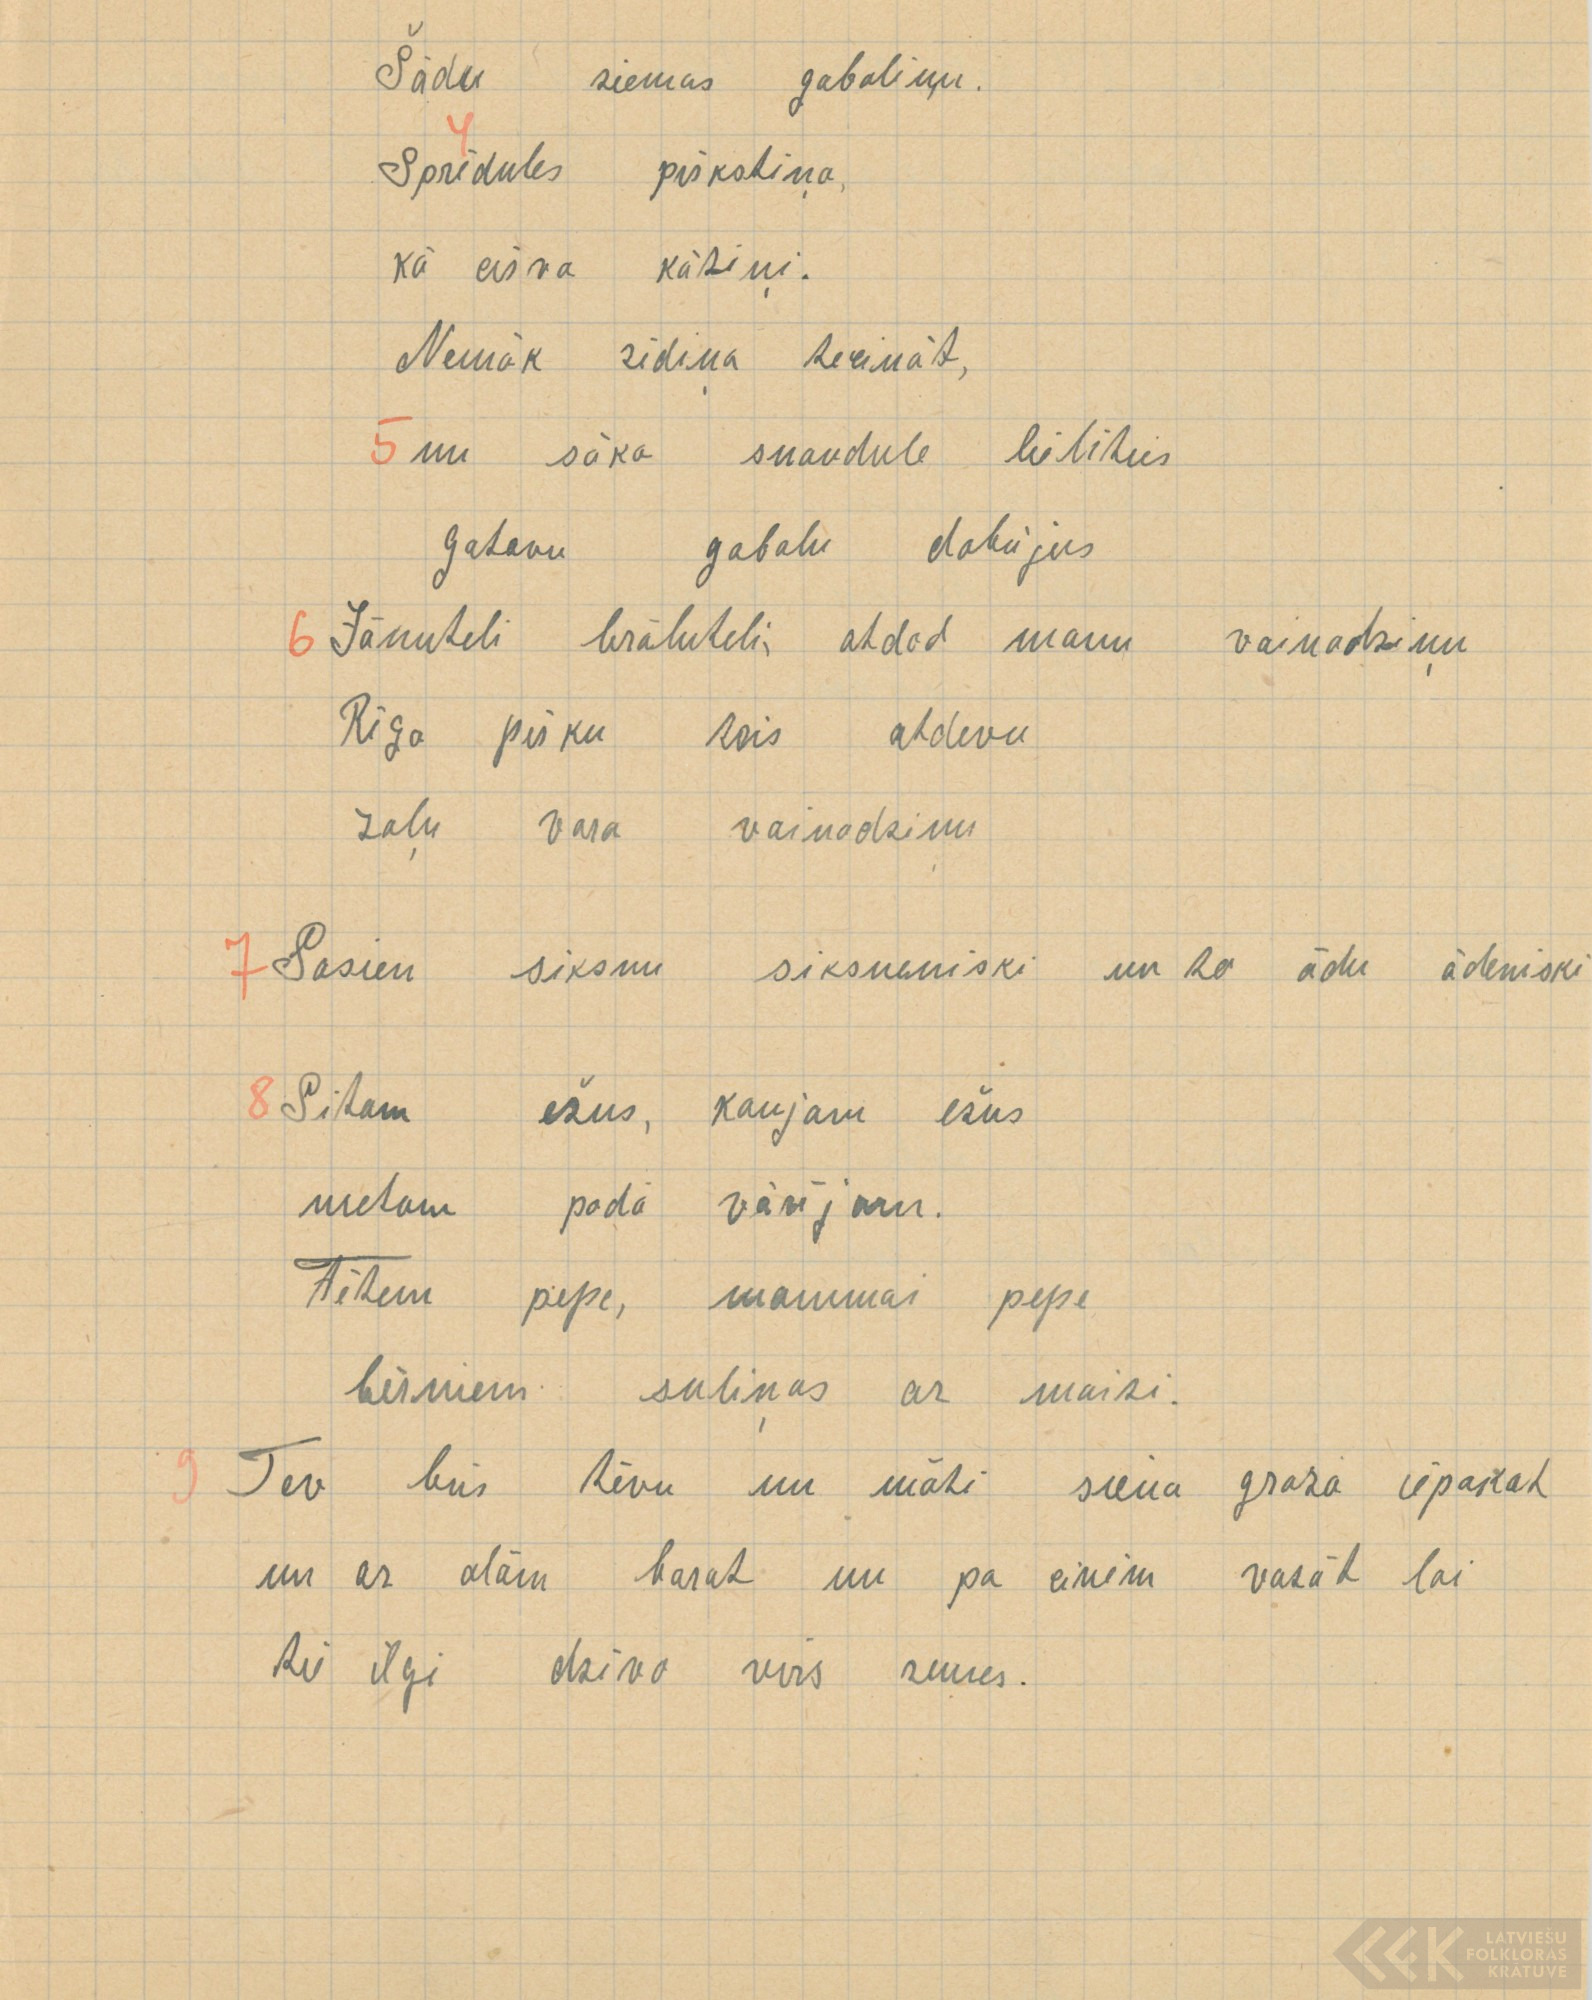 Šādu ziemas gabaliņu.
4
Sprēdules pirkstiņa,
kā cirva kātiņi.
Nemāk zīdiņa tecināt,
5 nu sāka snaudule lielīties
gatavu gabalu dabūjus
6 Jānuteli brāluteli, atdod manu vainadziņu
Rīgā pirku tais atdevu
zaļu vara vainadziņu
7 Sasien siksnu siksneniski un to ādu ādeniski
8 Sitam ežus, kaujam ežus
metam podā vārījam.
Tētem pepe, mammai pepe
bērniem suliņas ar maizi.
9 Tev būs tēvu un māti siena grozā iepakat
un ar olām barat un pa ciņiem vazāt lai
tie ilgi dzīvo virs zemes.
LATVIEŠU
FOLKLORAS
KRĀTUVE